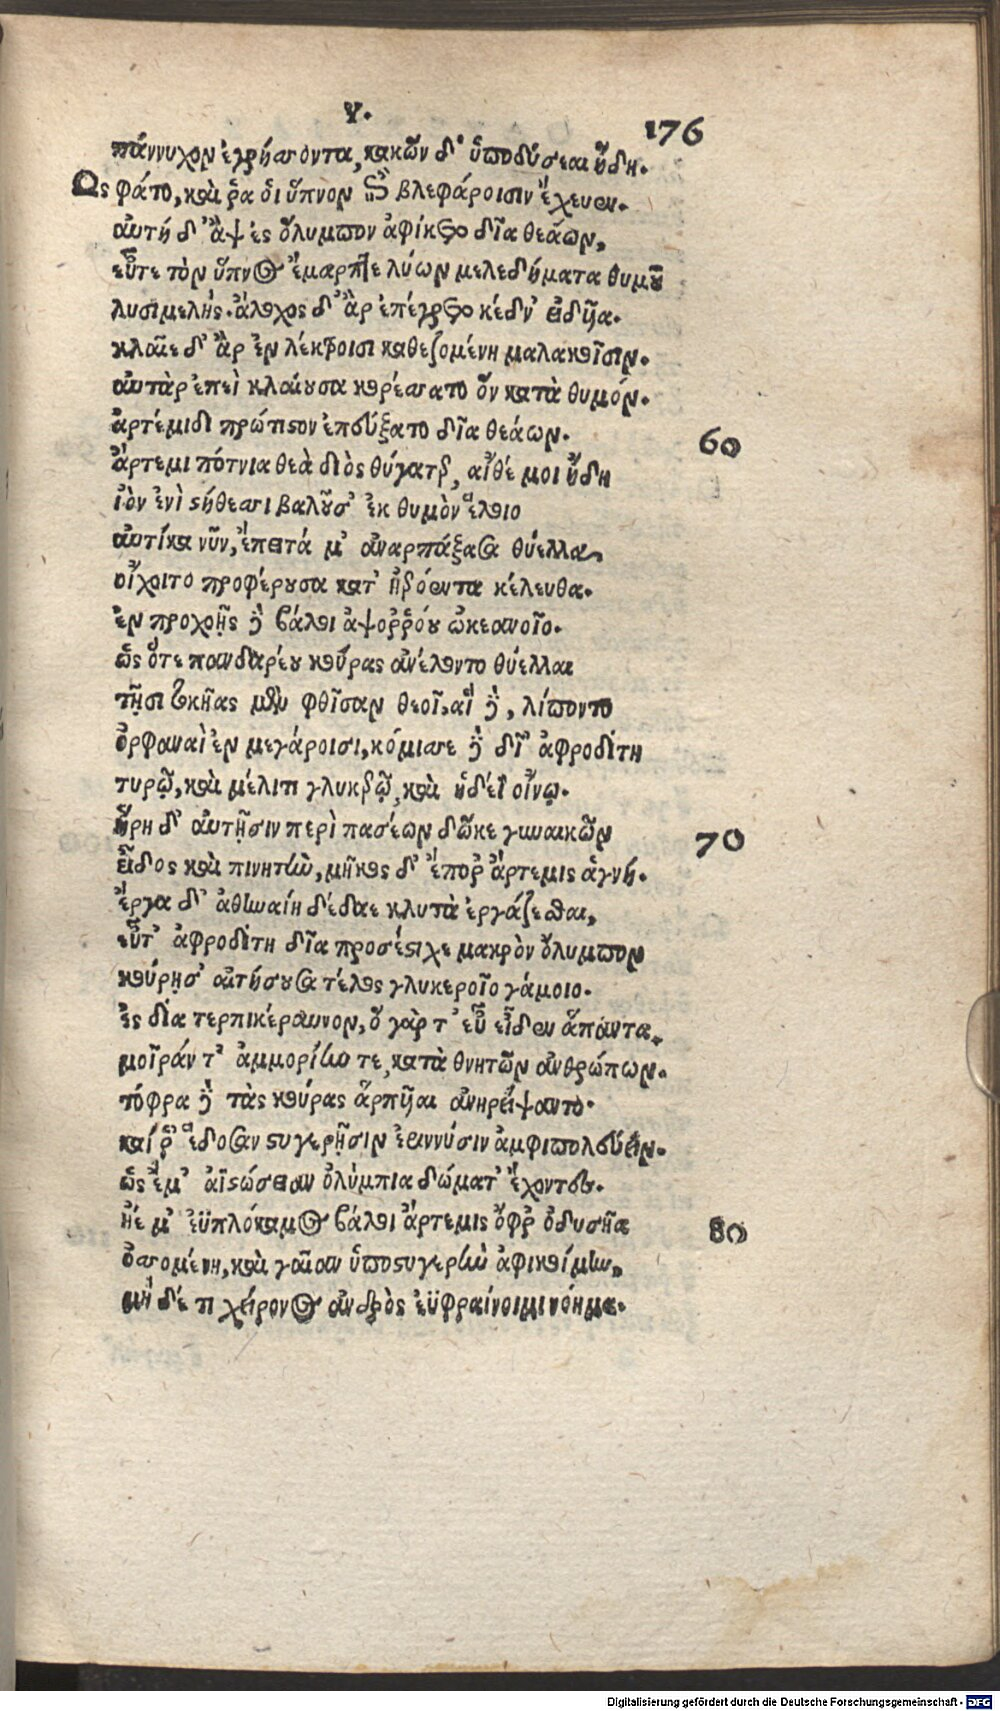 υ.
176
πάννυχον ἐγρήσσοντα, κακῶν δ' ὑποδύσεαι ἤδη.
Ως φάτο, καί ῥα οἱ ὕπνον ἐπὶ βλεφάροισιν ἔχευεν.
αὐτὴ δ' ἂψ ἐς ὄλυμπον ἀφίκετο δῖα θεάων,
εὖτε τὸν ὕπνος ἔμαρπτε λύων μελεδήματα θυμοῦ
λυσιμελής. ἄλοχος δ' ἂρ ἐπέγρετο κέδν' εἰδυῖα.
κλαῖε δ' ἂρ ἐν λέκτροισι καθεζομένη μαλακοῖσιν.
αὐτὰρ ἐπεὶ κλαίουσα κορέσσατο ὃν κατὰ θυμόν.
ἀρτέμιδι πρώτιστον ἐπεύξατο δῖα θεάων.
60
ἄρτεμι πότνια θεὰ διὸς θύγατερ, αἴθέ μοι ἤδη
ἰὸν ἐνὶ στήθεσσι βαλοῦσ' ἐκ θυμὸν ἕλοιο
αὐτίκα νῦν, ἔπειτά μ' ἀναρπάξασα θύελλα,
οἴχοιτο προφέρουσα κατ' ἠερόεντα κέλευθα.
ἐν προχοῇς δὲ βάλοι ἀψορρόου ὠκεανοῖο.
ὡς ὅτε πανδαρέου κούρας ἀνέλοντο θύελλαι
τῇσι τοκῆας μὲν φθῖσαν θεοῖ, αἱ δὲ, λίποντο
ὀρφαναὶ ἐν μεγάροισι, κόμισσε δὲ δῖ' ἀφροδίτη
τυρῷ, καὶ μέλιτι γλυκερῷ, καὶ ἡδέϊ οἴνῳ.
ἥρη δ' αὐτῇσιν περὶ πασέων δῶκε γυναικῶν
70
εἶδος καὶ πινητὴν, μῆκος δ' ἔπορ' ἄρτεμις ἁγνή.
ἔργα δ' ἀθηναίη δέδαε κλυτὰ ἐργάζεσθαι,
εὖτ' ἀφροδίτη δῖα προσέστιχε μακρὸν ὄλυμπον
κούρῃσ' αἰτήσουσα τέλος γλυκεροῖο γάμοιο.
ἐς δία τερπικέραυνον, ὃ γάρ τ' εὖ εἶδεν ἅπαντα,
μοῖράν τ' ἀμμορίην τε, κατὰ θνητῶν ἀνθρώπων.
τόφρα δὲ τὰς κούρας ἅρπυῖαι ἀνηρείψαντο.
καί ῥ' ἔδοσαν στυγερῇσιν ἐριννύσιν ἀμφιπολεύειν.
ὣς ἔμ' ἀϊστώσειαν ὀλύμπια δώματ' ἔχοντες.
ἠέ μ' ἐϋπλόκαμος βάλοι ἄρτεμις ὄφρ' ὀδυσῆα
80
ὀσσομένη, καὶ γαῖαν ὕπο στυγερὴν ἀφικοίμην,
μηδέ τι χείρονος ἀνδρὸς ἐϋφραίνοιμι νόημα.
Digitalisierung gefördert durch die Deutsche Forschungsgemeinschaft - DFG